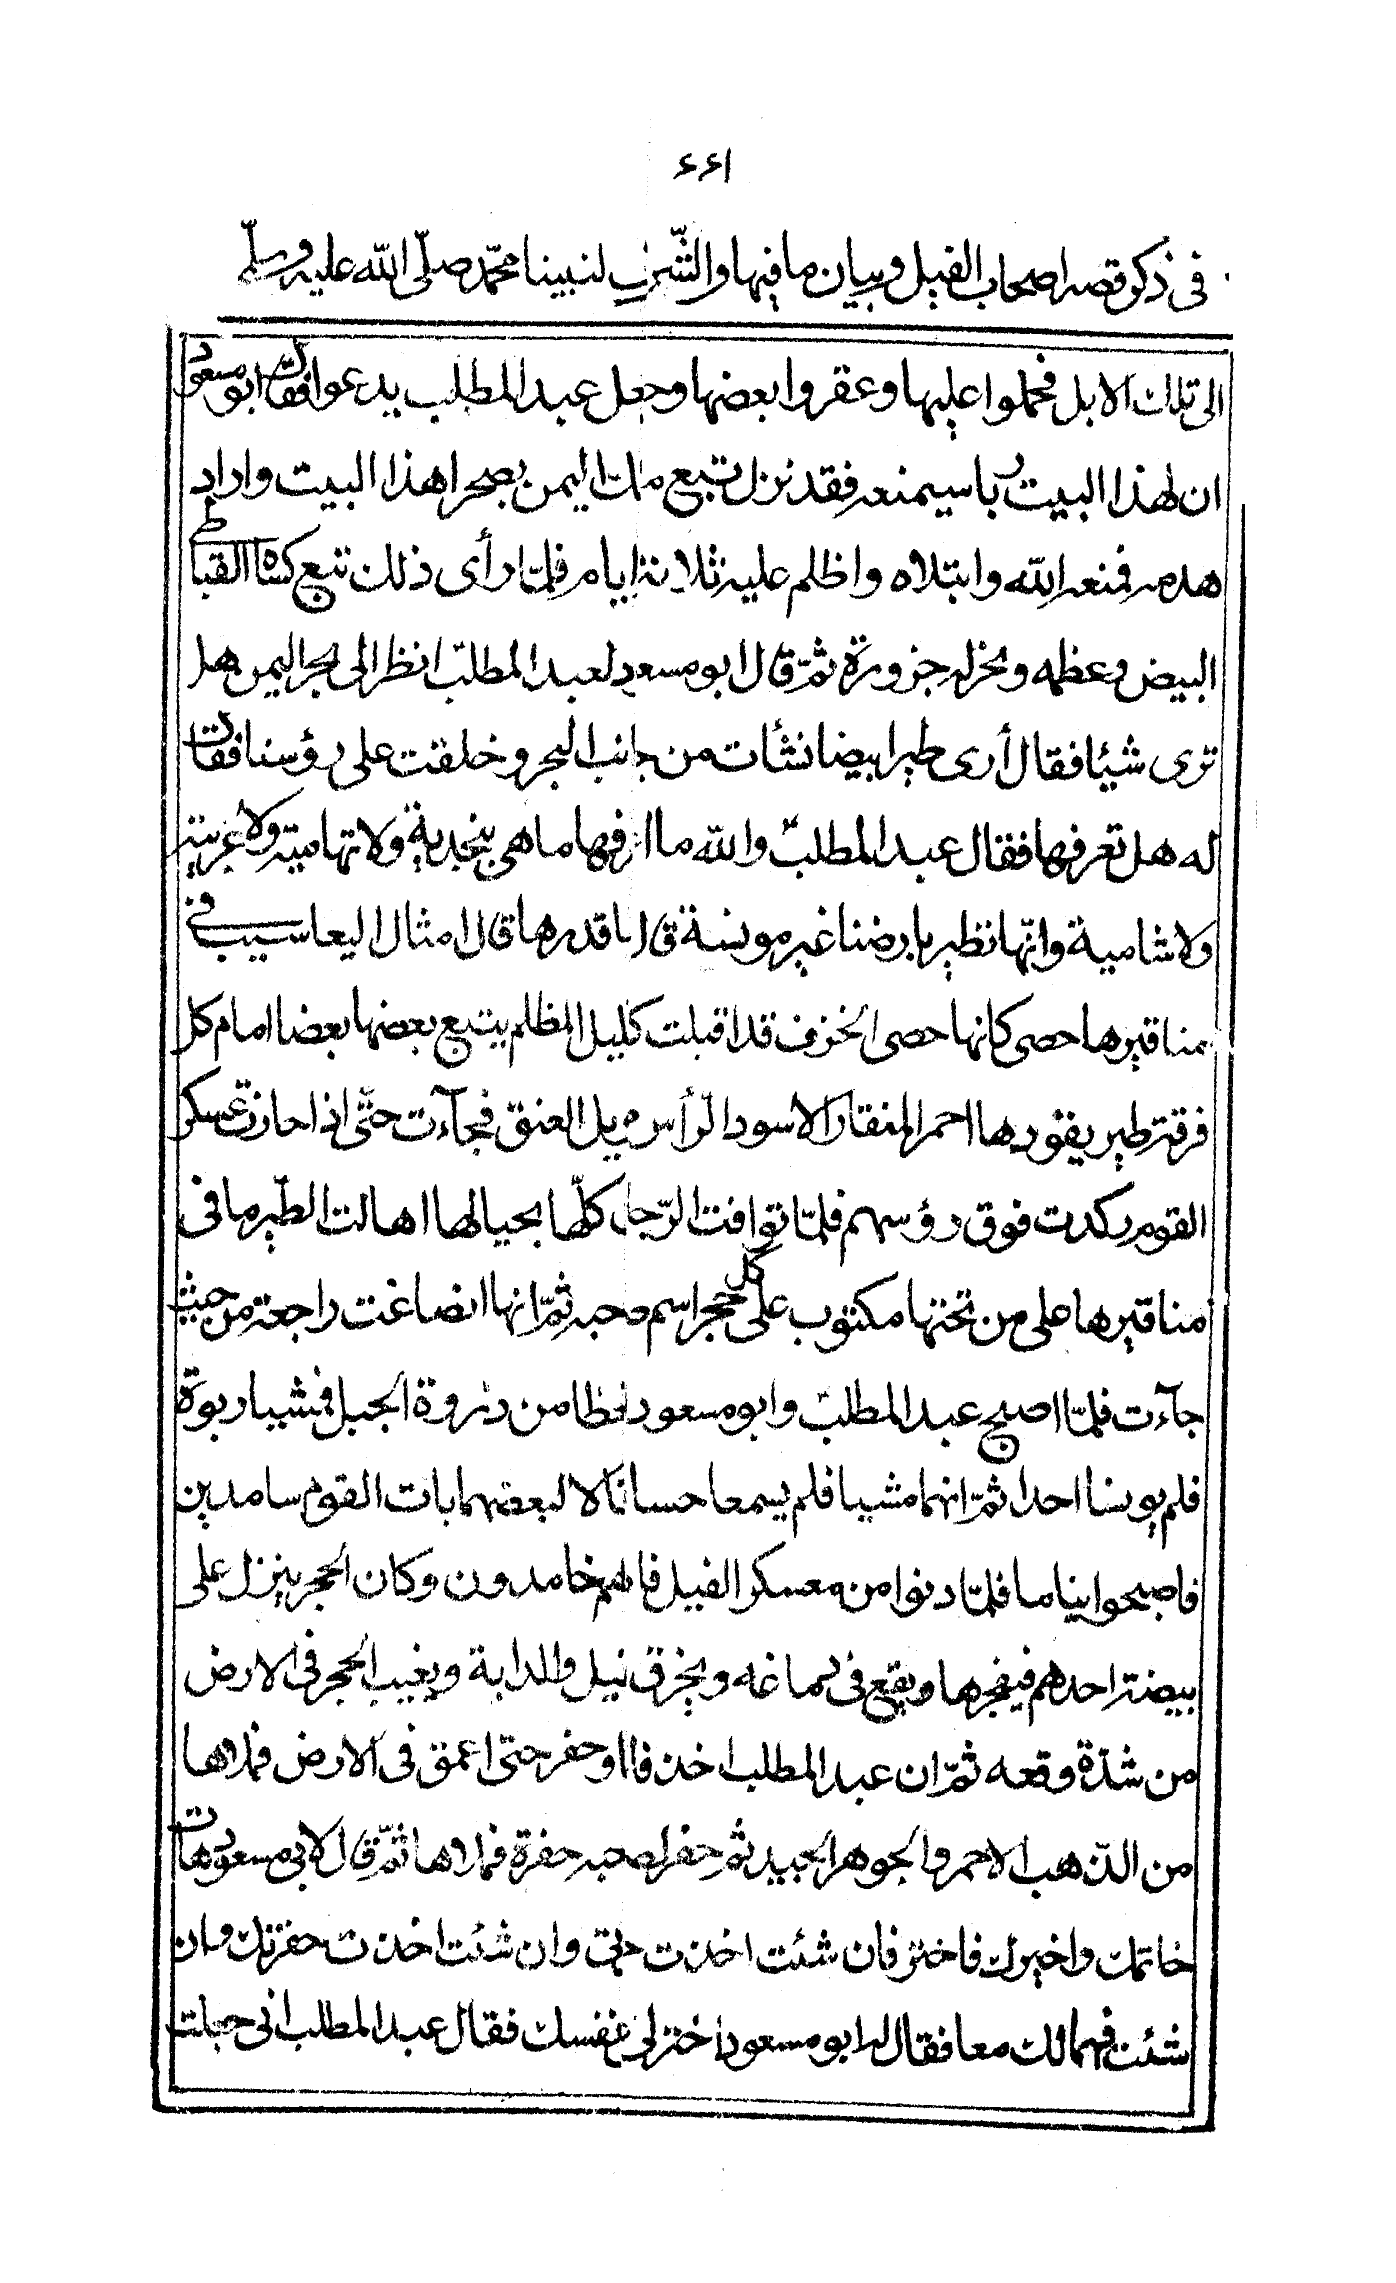 ۶۶۱
في ذكر قصة اصحاب الفيل وبيان ما فيها والشّرف لنبينا محمّد صلّى الله عليه وسلّم
الى تلك الابل فحملوا عليها وعقروا بعضها وجعل عبد المطلب يدعوا فقال ابو مسعود
ان لهذا البيت ربا سيمنعه فقد نزل تبع ملك اليمن بصحرا هذا البيت واراد
هدمه فمنعه الله وابتلاه واظلم عليه ثلاثة ايام فلمّا رأى ذلك تبع كساه القباطي
البيض وعظمه ونحر له جزورة ثمّ قال ابو مسعود لعبد المطلب انظر الى بحر اليمن هل
ترى شيئا فقال أرى طيرا بيضا نشأت من جانب البحر وخلقت على رؤسنا فقال
له هل تعرفها فقال عبد المطلب والله ما اعرفها ما هي بنجدية ولا تهامية ولا غربية
ولا شامية وانّها تطير بارضنا غير مونسة قال ما قدرها قال امثال اليعاسيب في
مناقيرها حصى كانها حصى الخزف قد اقبلت كليل المظلم يتبع بعضها بعضا امام كل
فرقة طير يقودها احمر المنقار الاسود الرّأس طويل العنق فجآءت حتّى اذا حازت عسكر
القوم ركدت فوق رؤسهم فلمّا توافت الرّجل كلّها بحيالها اهالت الطّير ما في
مناقيرها على من تحتها مكتوب على كل حجر اسم صحبه ثمّ انها انصاغت راجعة من حيث
جآءت فلمّا اصبح عبد المطلب وابو مسعود نحظا من دزوة الجبل فمشيا ربوة
فلم يونسا احدا ثمّ انهما مشيا فلم يسمعا حسا فقالا لبعضهما بات القوم سامدين
فاصبحوا نياما فلمّا دنوا من معسكر الفيل فاذاهم خامدون وكان الحجر ينزل على
بيضة احدهم فيفجرها ويقع في دماغه ويخرق نيل والدابة ويغيب الحجر في الارض
من شدّة وقعه ثمّ ان عبد المطلب اخذ فااو حفر حتى اعمق في الارض فملاها
من الذّهب الاحمر والجوهر الجيد ثم حفر لصحبه حفرة فملاها ثمّ قال لابي مسعود هات
خاتمك واخيرك فاختر فان شئت اخذت حفرتي وان شئت اخذت حفرتك وان
شئت فهما لك معا فقال له ابو مسعود اختر لي عن نفسك فقال عبد المطلب اني جعلت